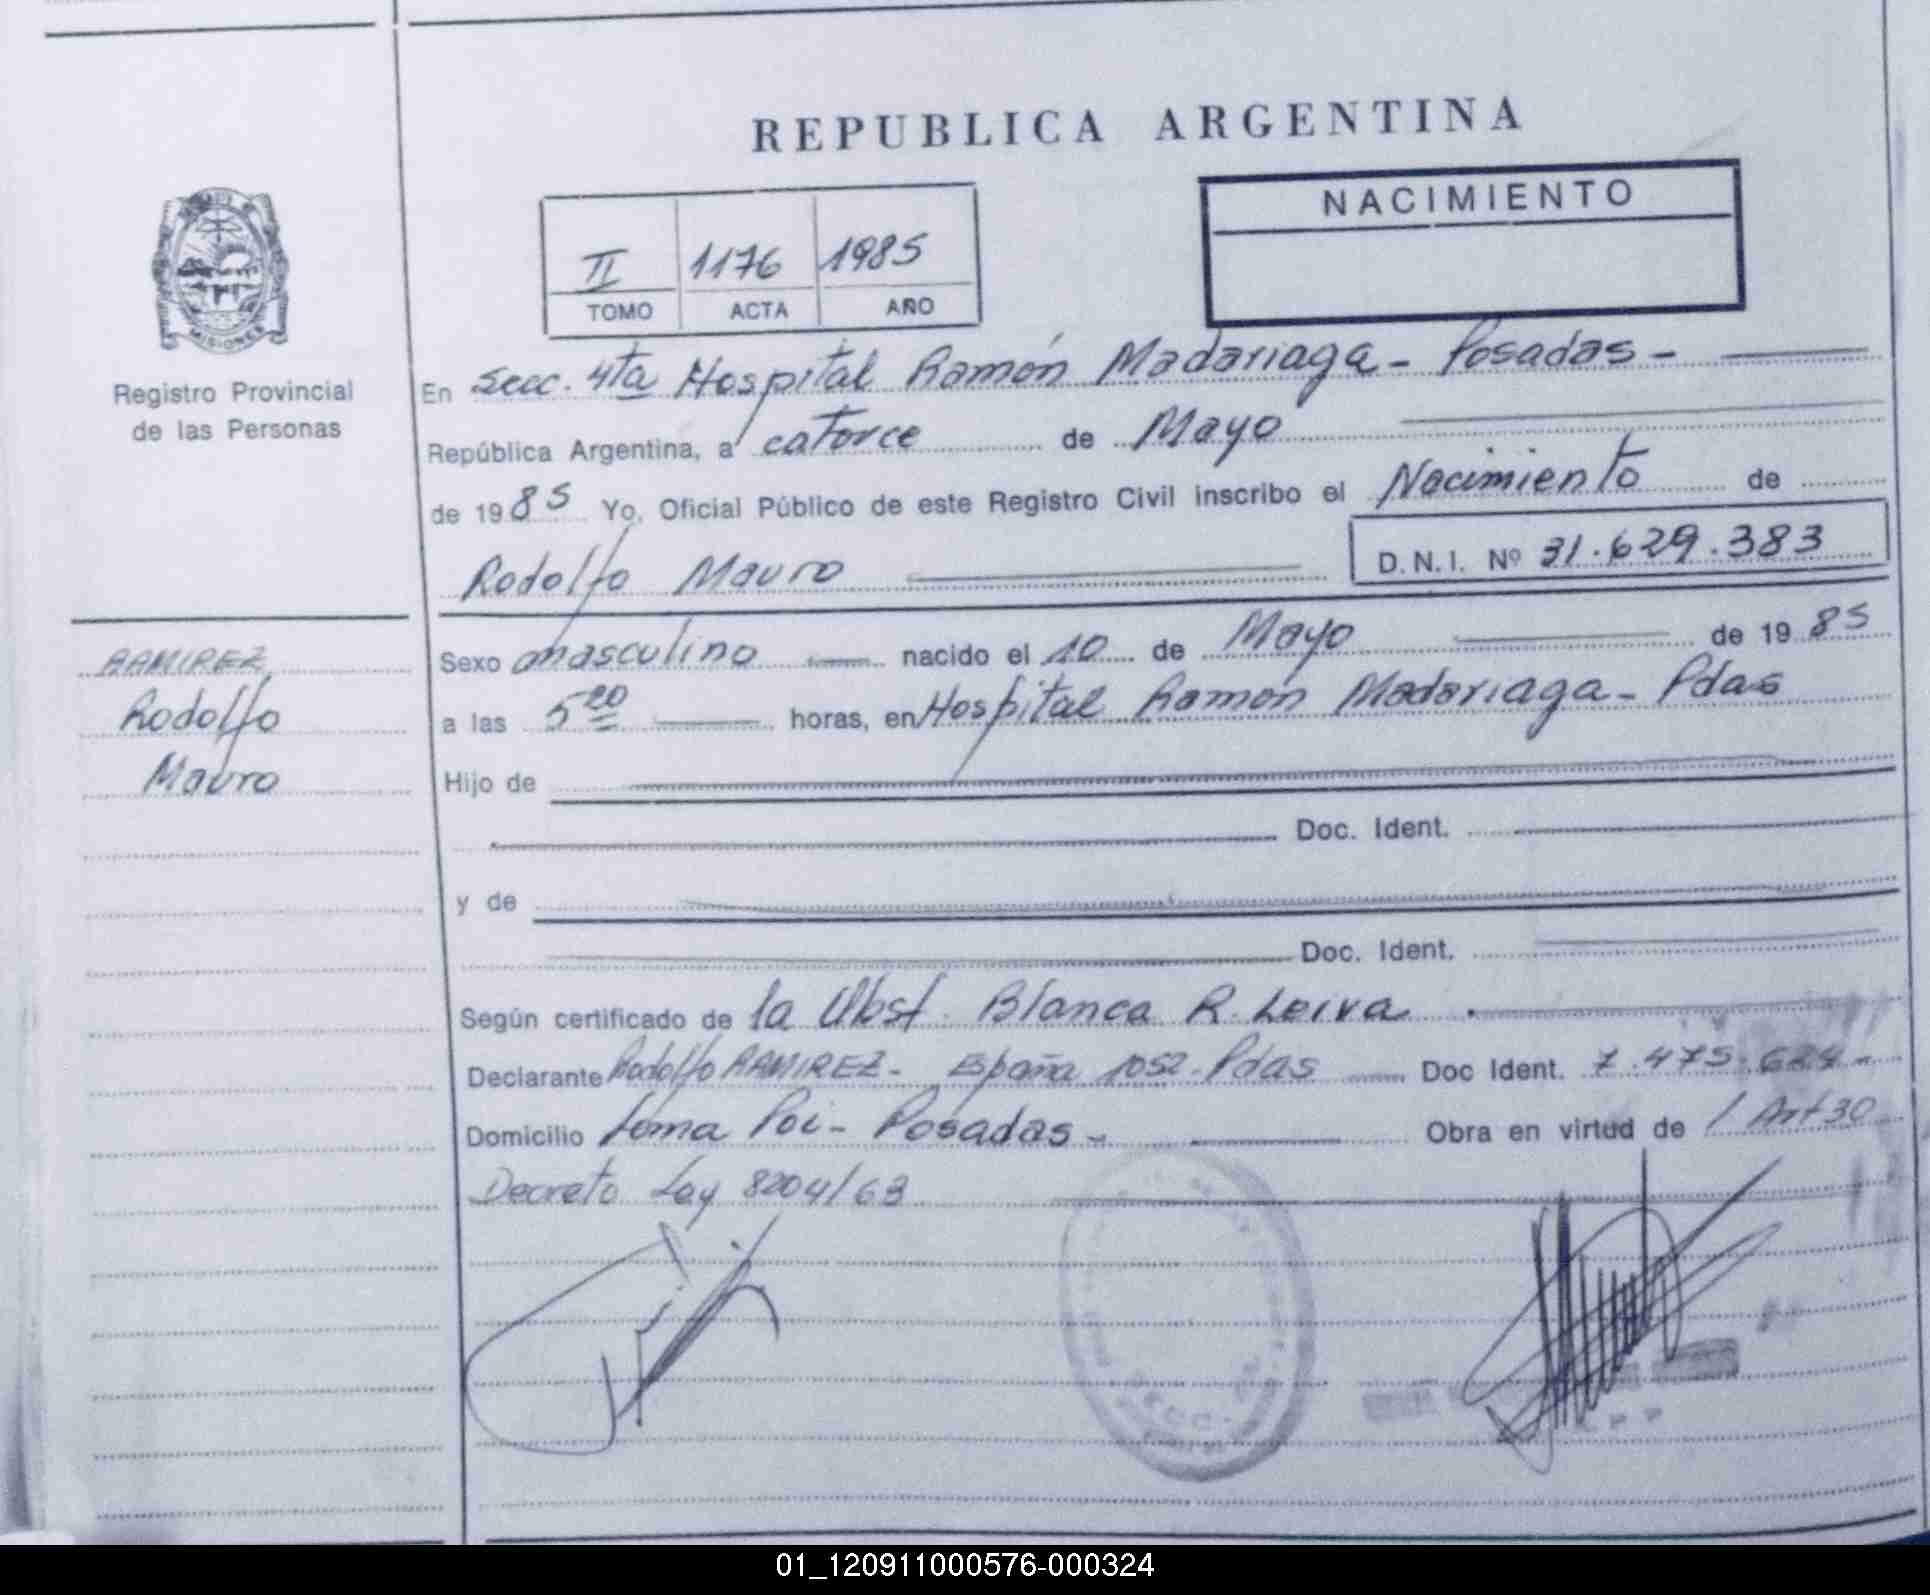 REPUBLICA ARGENTINA
NACIMIENTO
II 1176 1985
TOMO ACTA AÑO
MISIONES
Registro Provincial
de las Personas
En secc. 4ta Hospital Ramón Madariaga - Posadas -
República Argentina, a catorce de Mayo
de 1985 Yo, Oficial Público de este Registro Civil inscribo el Nacimiento de
Rodolfo Mauro D.N.I. Nº 31.629.383
RAMIREZ
Rodolfo
Mauro
Sexo masculino nacido el 10 de Mayo de 1985
a las 5 20 horas, en Hospital Ramón Madariaga - Pdas
Hijo de
Doc. Ident.
y de
Doc. Ident.
Según certificado de la Obst. Blanca R. Leiva
Declarante Rodolfo RAMIREZ - España 1052 - Pdas Doc Ident. 7.475.624 -
Domicilio Loma Poi - Posadas - Obra en virtud de / Art 30
Decreto Ley 8204/63
01_120911000576-000324